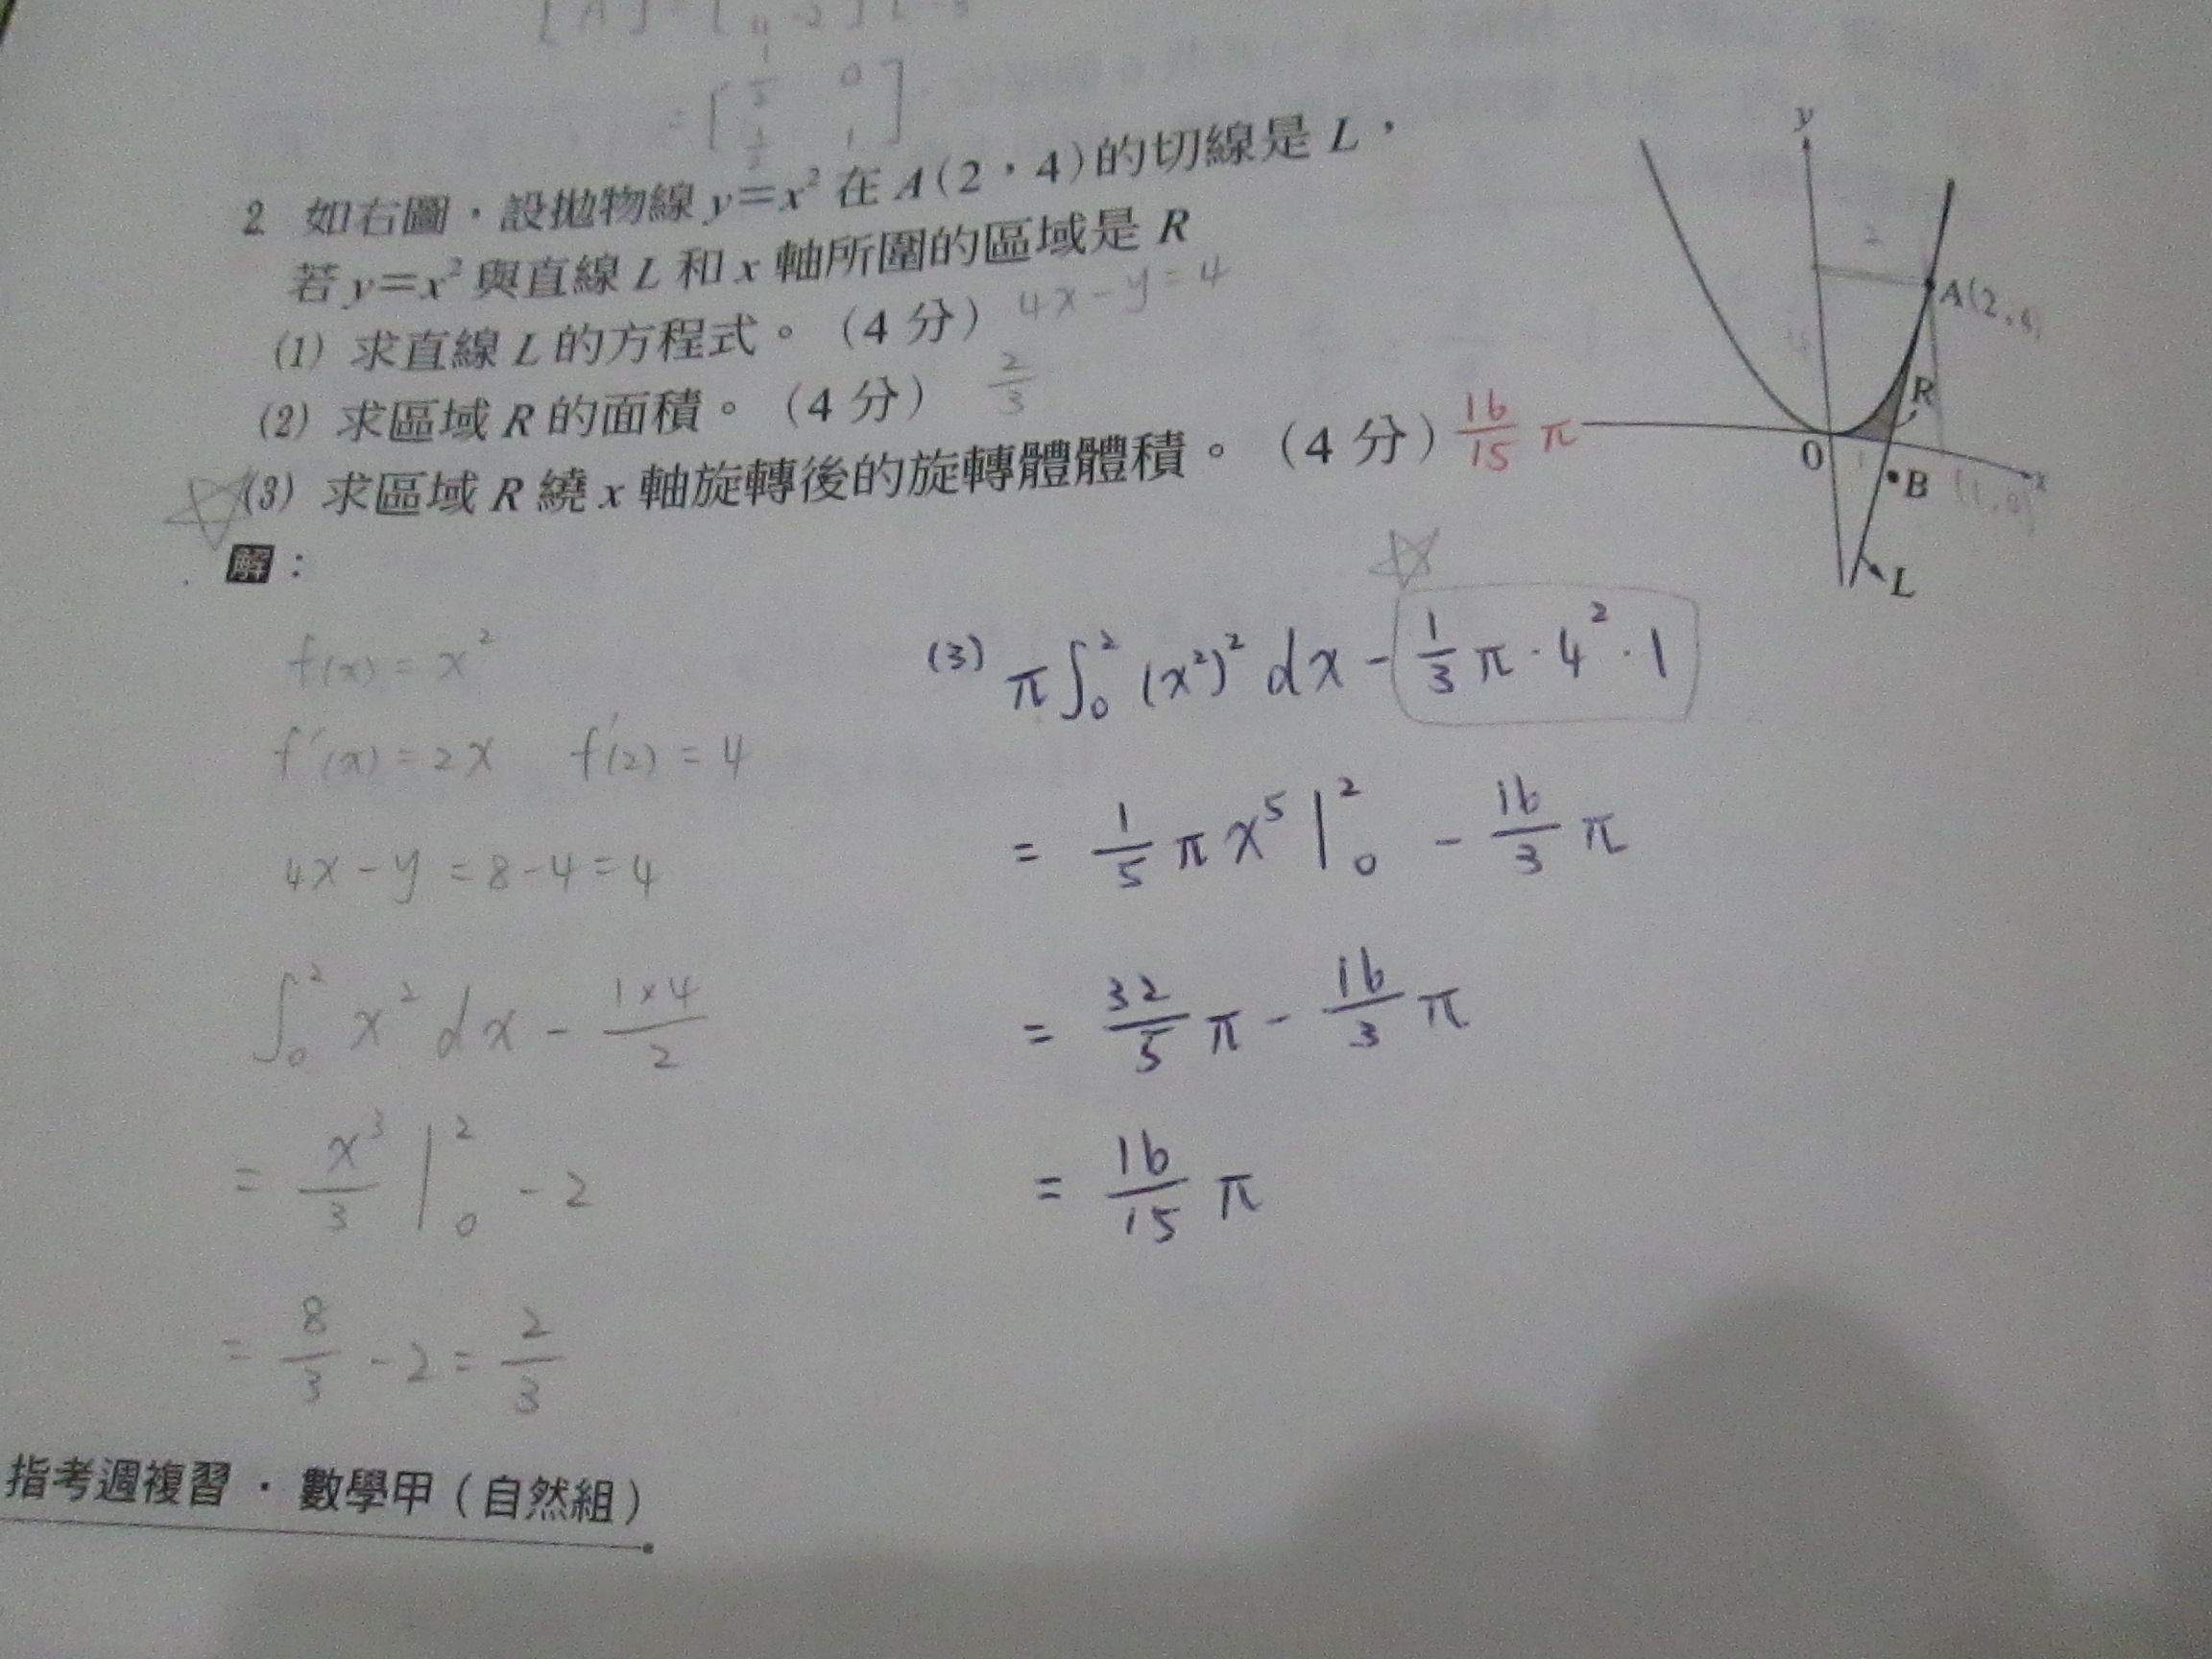 = [ 1/2 0
1/2 1 ]
2 如右圖，設拋物線 y=x² 在 A(2，4)的切線是 L，
若 y=x² 與直線 L 和 x 軸所圍的區域是 R
(1) 求直線 L 的方程式。（4 分） 4x-y=4
(2) 求區域 R 的面積。（4 分） 2/3
(3) 求區域 R 繞 x 軸旋轉後的旋轉體體積。（4 分） 16/15 π
y
2
4
A(2,4)
R
O
1
B
(1,0)
x
L
解：
f(x)=x²
f'(x)=2x f'(2)=4
4x-y=8-4=4
∫₀² x² dx - 1×4/2
= x³/3 |₀² - 2
= 8/3 - 2 = 2/3
(3) π∫₀² (x²)² dx - 1/3 π·4²·1
= 1/5 π x⁵ |₀² - 16/3 π
= 32/5 π - 16/3 π
= 16/15 π
指考週複習 · 數學甲（自然組）